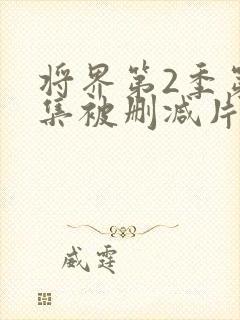 将界第2季第
集被删减片
威霆